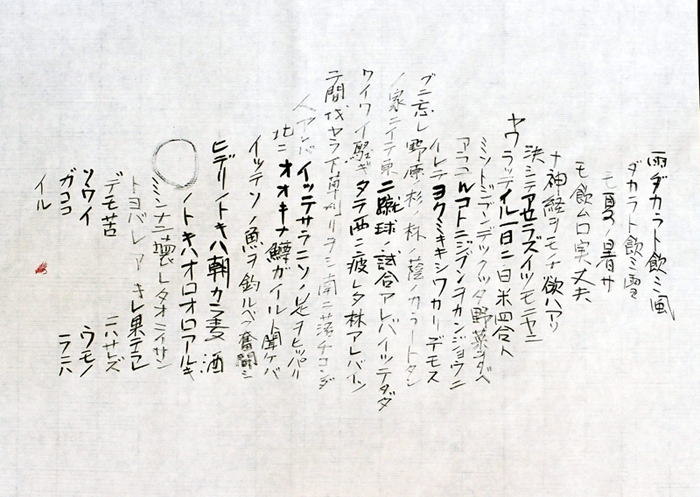 雨ダカラト飲ミ風
ダカラト飲ミ雪
モ夏ノ暑サ
モ飲ム口実丈夫
ナ神経ヲモチ欲ハアリ
決シテアセラズイツモニヤニ
ヤワラッテイル一日ニ白米四合ト
ミントジデンデツクッタ野菜ヲタベ
アラユルコトニジブンヲカンジョウニ
イレテヨクミキキシワカリデモス
グニ忘レ野原杉ノ林ノ蔭ノカラートタン
ノ家ニイテ東ニ蹴球ノ試合アレバイッテタダ
ワイワイ騒ギタラ西ニ疲レタ林アレバイッ
テ間伐ヤラ下草刈リヲシ南ニ落チコンダ
人アレバイッテサラニソノ足ヲヒッパリ
北ニオオキナ鱒ガイルト聞ケバ
イッテソノ魚ヲ釣ルベク奮闘シ
ヒデリノトキハ朝カラ麦酒
ノトキハオロオロアルキ
ミンナニ壊レタオニイサン
トヨバレアキレ果テラレ
デモ苦ニハサレズ
ソウイウモノ
ガココニラニハ
イル